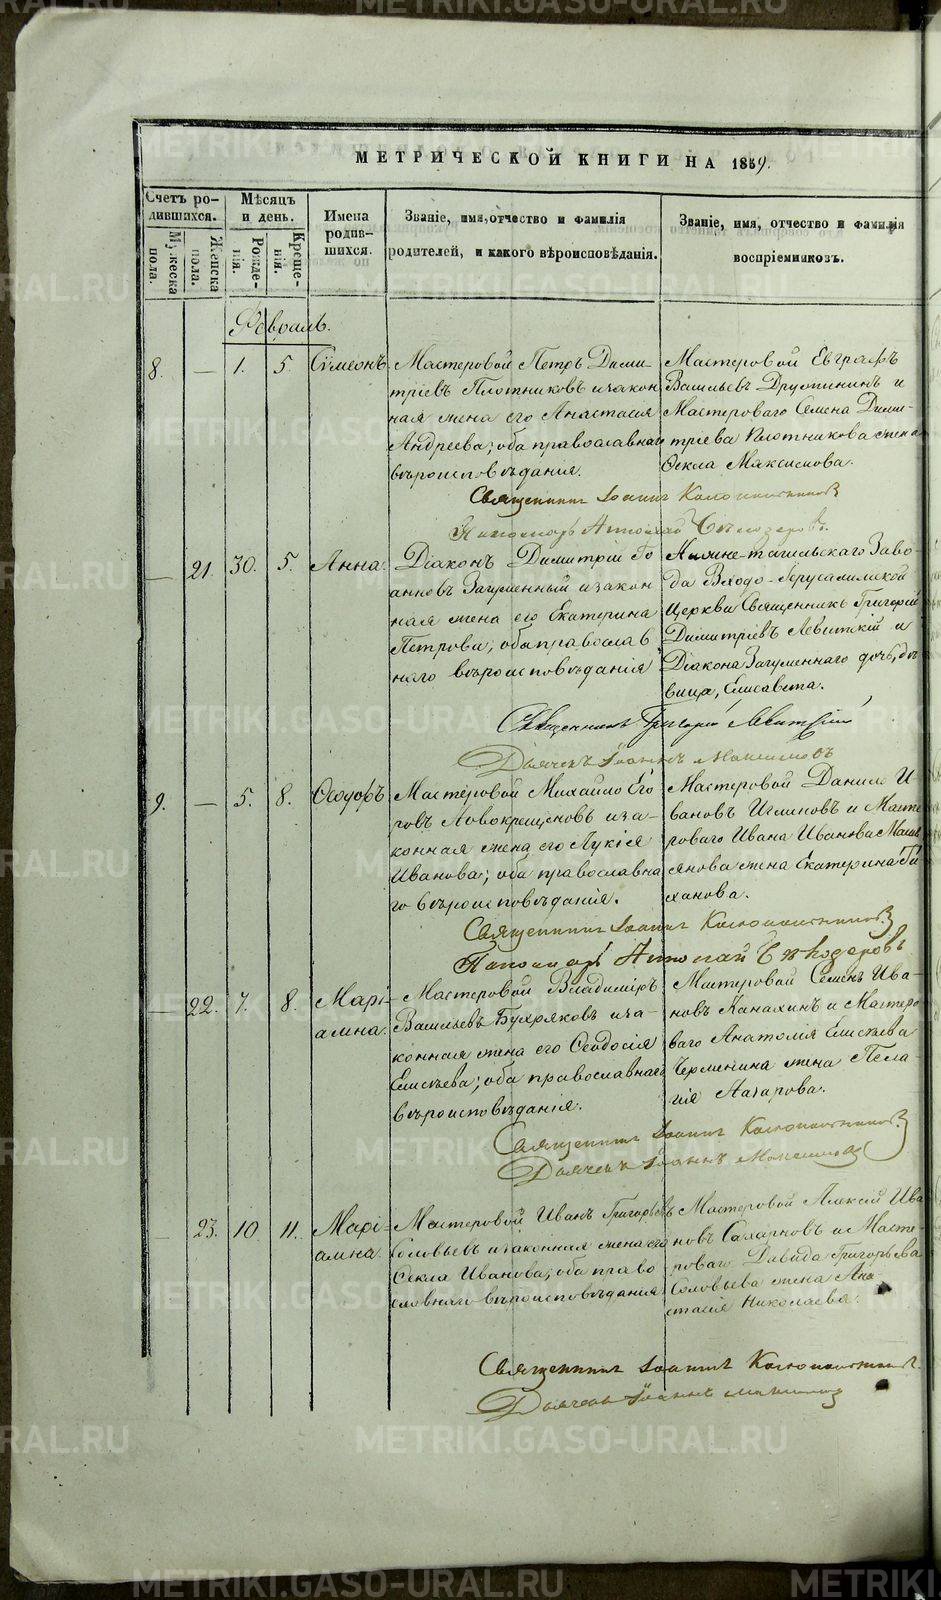 МЕТРИЧЕСКОЙ КНИГИ НА 1859.
Счетъ ро-
дившихся.
Мужеска
пола.
Женска
пола.
Мѣсяцъ
и день.
Рожде-
нія.
Креще-
нія.
Имена
родив-
шихся.
Званіе, имя, отчество и фамилія
родителей, и какого вѣроисповѣданія.
Званіе, имя, отчество и фамилія
воспріемниковъ.
Февраль.
8. — 1. 5 Сѵмеонъ
Мастеровой Петръ Дими-
тріевъ Плотниковъ и закон
ная жена его Анастасія
Андреева; оба православнаго
вѣроисповѣданія.
Мастеровой Евграфъ
Васильевъ Дружининъ и
Мастероваго Семена Дими-
тріева Плотникова жена
Ѳекла Максимова.
Священникъ Іоаннъ
Пономарь
— 21. 30. 5. Анна.
Діаконъ Димитрій Іо
анновъ Загуменный и закон
ная жена его Екатерина
Петрова; оба православ
наго вѣроисповѣданія
Нижне-тагильскаго Заво-
да Входо-Іерусалимской
Церкви Священникъ Григорій
Димитріевъ Левитскій и
Діакона Загуменнаго дочь, дѣ
вица, Елисавета.
Священникъ Григорій Левитскій
Дьячекъ Іоаннъ Максимовъ
9. — 5. 8. Ѳеодоръ
Мастеровой Михайло Его
ровъ Новокрещеновъ и за-
конная жена его Лукія
Иванова; оба православна
го вѣроисповѣданія.
Мастеровой Данило И-
вановъ и Масте
роваго Ивана Иванова
жена Екатерина Ти
ханова.
Священникъ Іоаннъ
Пономарь
— 22. 7. 8. Марі-
амна.
Мастеровой Владиміръ
Васильевъ Бухряковъ и за-
конная жена его Ѳеодосія
Елисѣева; оба православнаго
вѣроисповѣданія.
Мастеровой Семенъ Ива-
новъ и Мастеро
ваго Анатолія Елисѣева
жена Пела-
гія Назарова.
Священникъ Іоаннъ
Дьячекъ Іоаннъ Максимовъ
— 23. 10. 11. Марі-
амна.
Мастеровой Иванъ Григорьевъ
Соловьевъ и законная жена его
Ѳекла Иванова; оба право
славнаго вѣроисповѣданія
Мастеровой Алексій Ива
новъ Сахаровъ и Масте-
роваго Давида Григорьева
Соловьева жена Ана
стасія Николаева.
Священникъ Іоаннъ
Дьячекъ Іоаннъ
METRIKI.GASO-URAL.RU